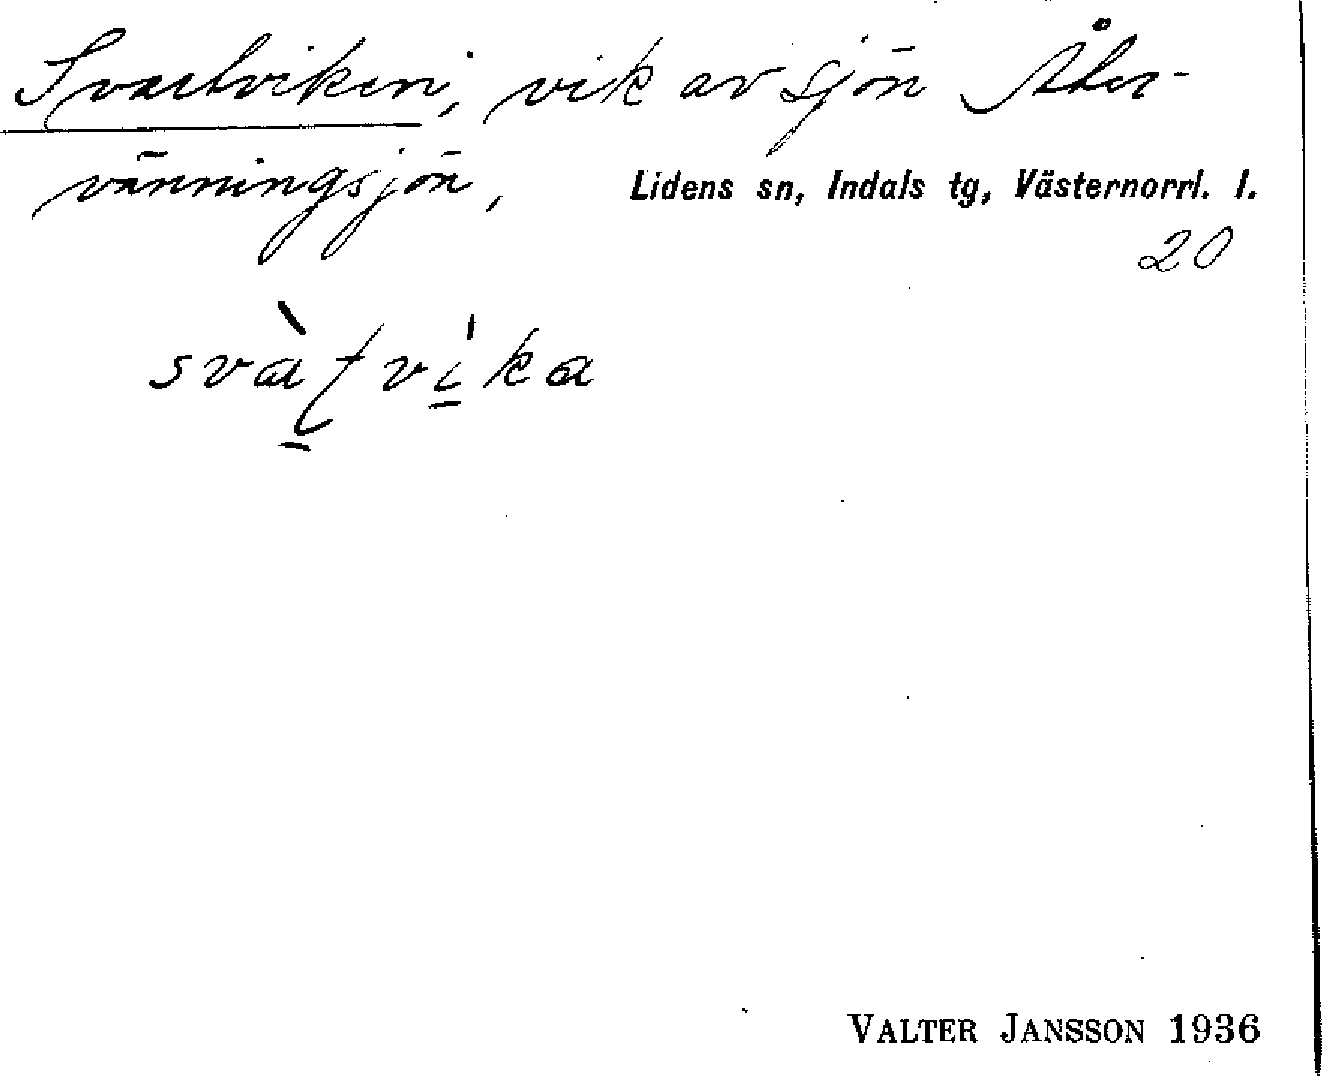 Svartviken, vik av sjön Åter-
vänningsjön,
Lidens sn, Indals tg, Västernorrl. l.
20
svàtvika
VALTER JANSSON 1936